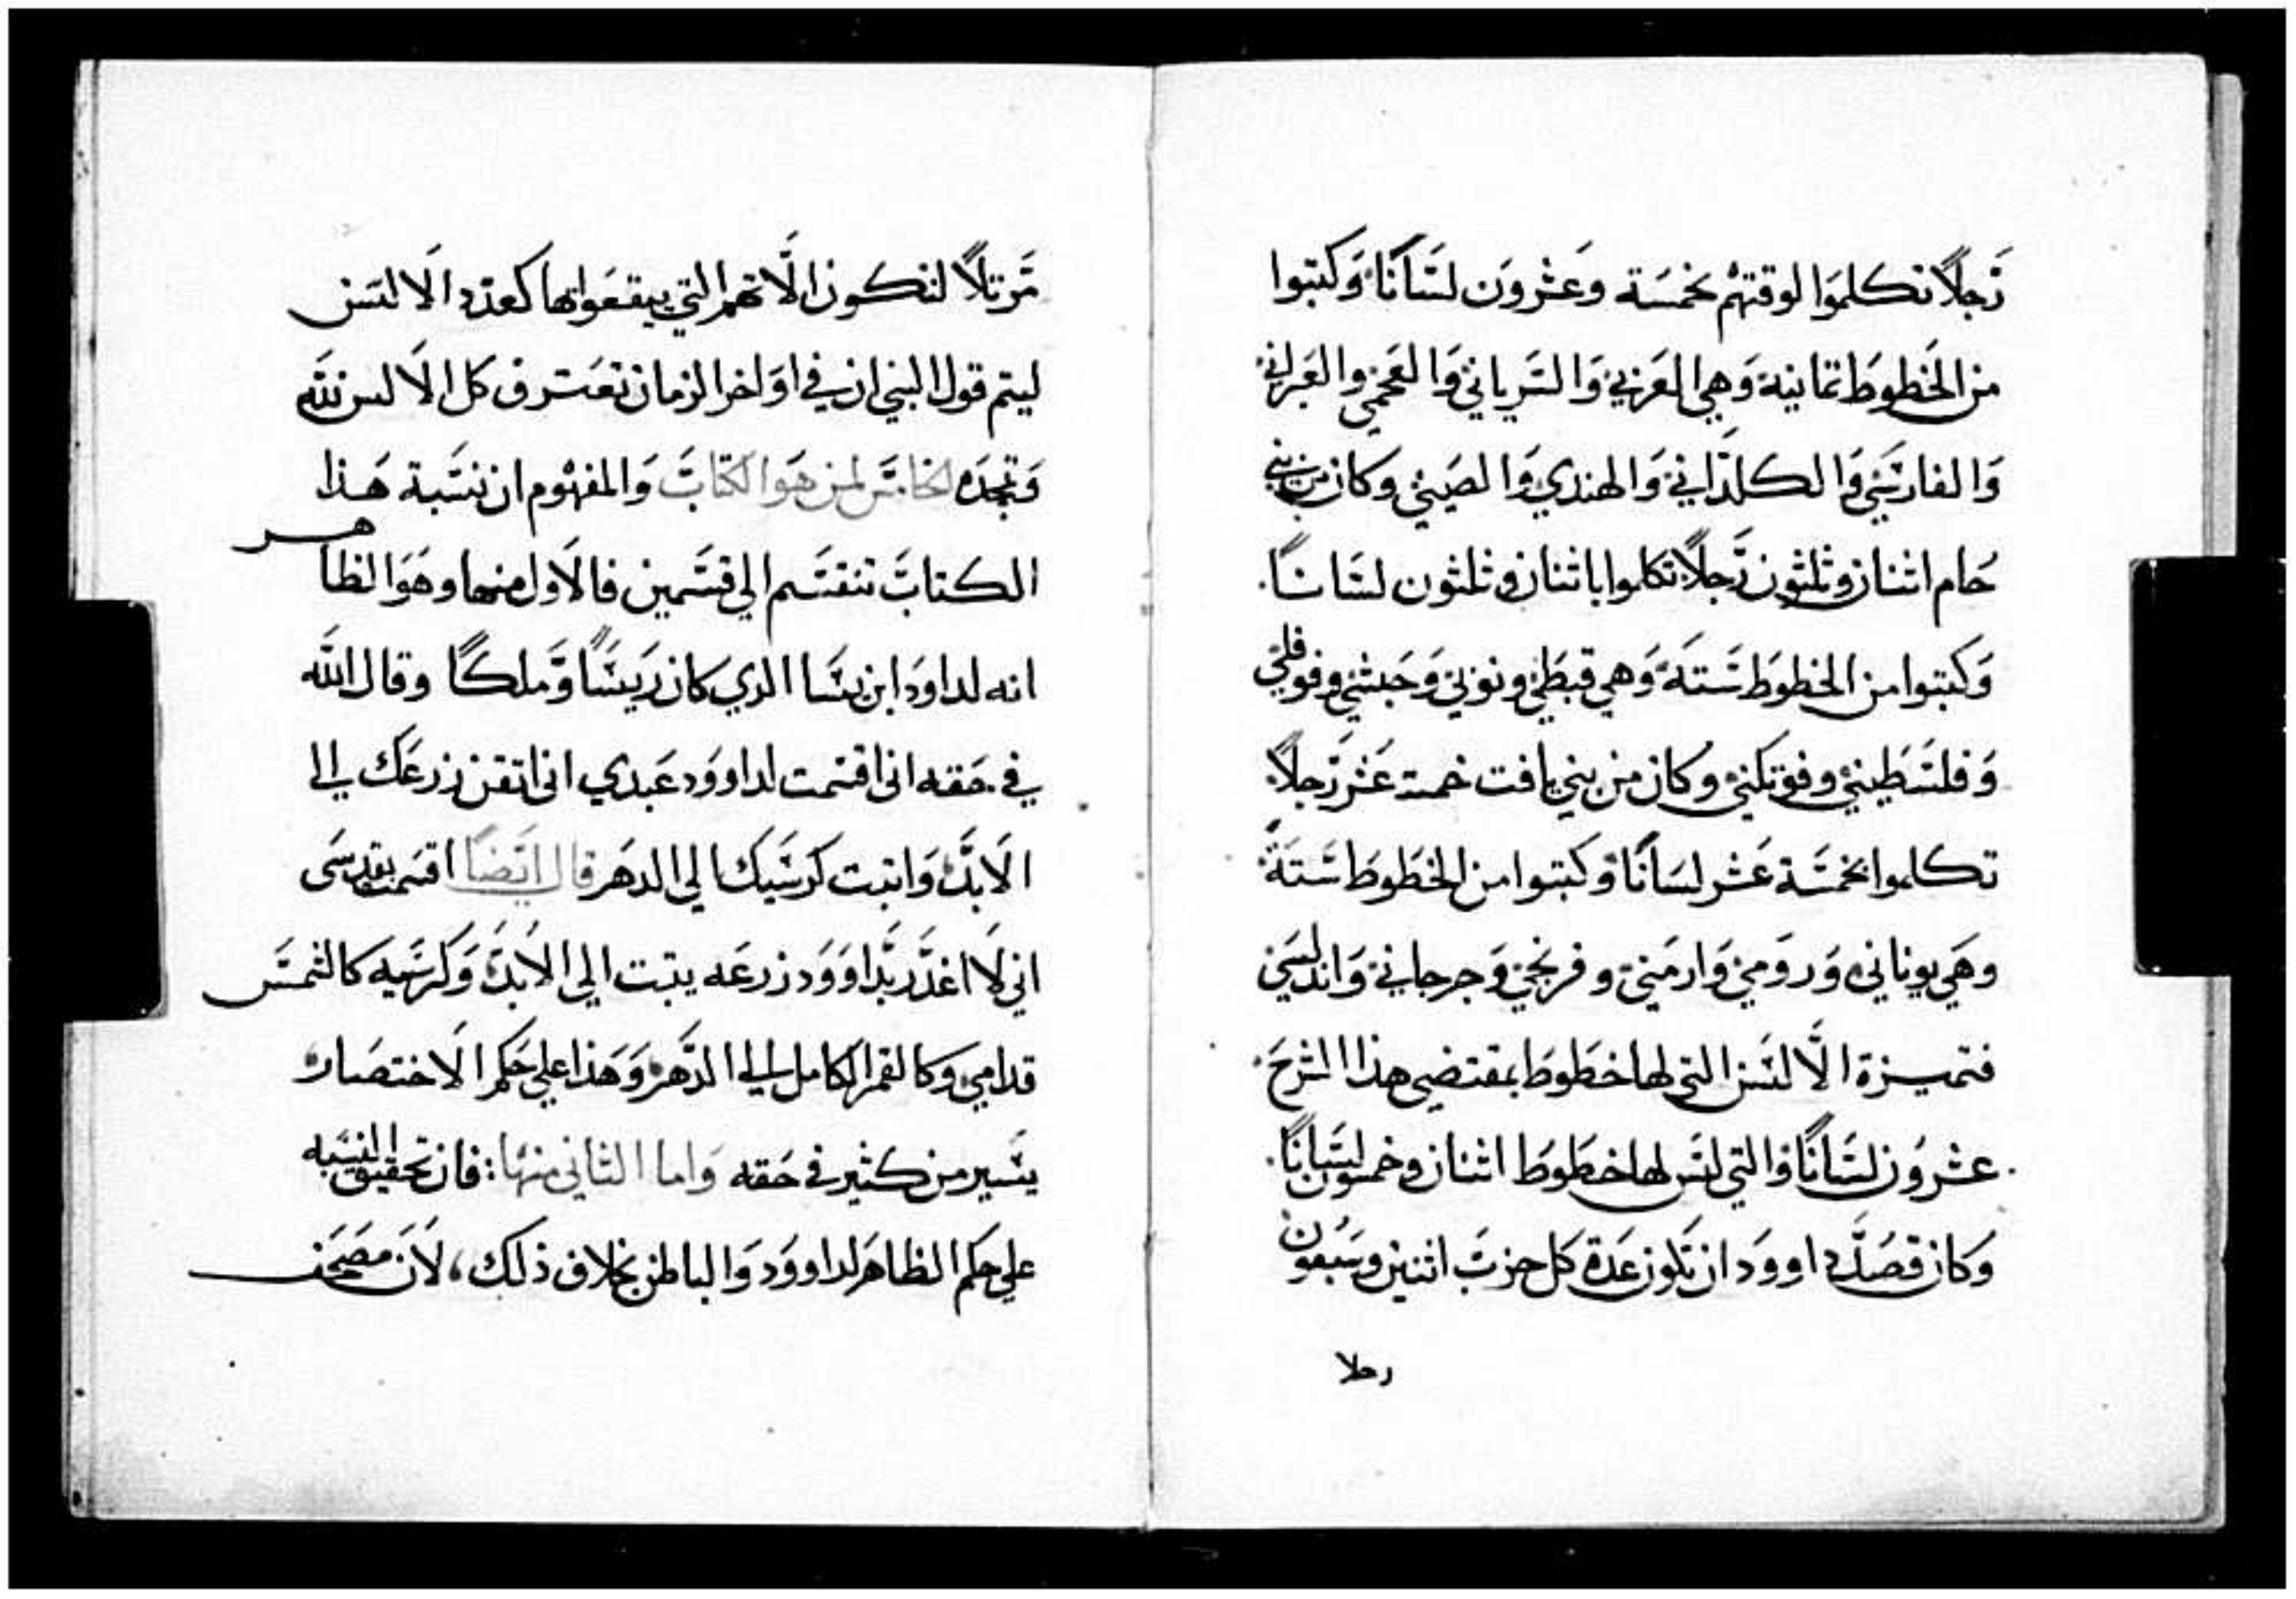 رَجلاً تكلموَا لوقتهُم بخمسَة وعَشروَن لسَاناً وَكتبوا
من الخَطوطَ تمانية وَهي العَربي وَالسَرياني وَالعَجمي والعَبراني
وَالفارسَي وَالكلدَاني وَالهندي وَالصَيني وكان من بني
حَام اثنان وثلثون رَجلاً تكلموا باثنان وثلثون لسَاناً.
وَكتبوا من الخطوطَ سَتةَ وَهي قبطَي ونوبي وَحَبشي وفوقلي
وَفلسَطيني وفوتكني وكان من بني يافت خمسة عَشر رَجلاً
تكلموا بخمسَة عَشر لسَاناً وكتبوا من الخَطَوطَ سَتةَ
وهَي يوناني وَرومي وَارمَيني وفرنجي وَجرجاني وَاندلسَي
فتميزة الاَلسَن التي لها خطَوطَ بمقتضي هذا الشرحَ
عشرُون لسَاناً والتي ليسَ لها خطَوطَ اثنان وخمسَون لسَاناً.
وَكان قصَد داووَد ان تكون عَدة كل حزبَ اثنين وسَبعُون
رجلا
مَرتلاً لتكون الاَتهم التي يبقعَوابها كعَدد الاَلسَن
ليتم قول النبي ان في اوَاخر الزمان تعَترف كل الاَلسن لله
وَتجدَه الخامسَ لمن هَوا لكتابَ وَالمفهُوم ان نسَبة هَذا
الكتابَ تنقسَم الي قسَمين فالاَول منهما وهَوَا لظاهر
انه لداوَد ابن يسَا الذي كان رَيسَاً وَملكاً وقال اللَه
في حَقه اني اقسمت لداووَد عَبدي اني اتقن زرعَك الي
الاَبدَ وَاتبت كرسَيك الي الدهَر قال ايَضاً اقسَمت بقدسَي
اني لاَ اغدَر بدَاووَد زرعَه يتبت الي الاَبدَ وَكرسَيه كالشمسَ
قدامي وكالقمر الكامل الي الدَهر وَهَذا علي حَكم الاَختصَار
يسَير من كثير في حَقه وَاما الثاني منهَا: فان تحقيق النسَبه
علي حكم الظاهَر لداووَد وَالباطن بخلاف ذلك، لاَن مصَحَف